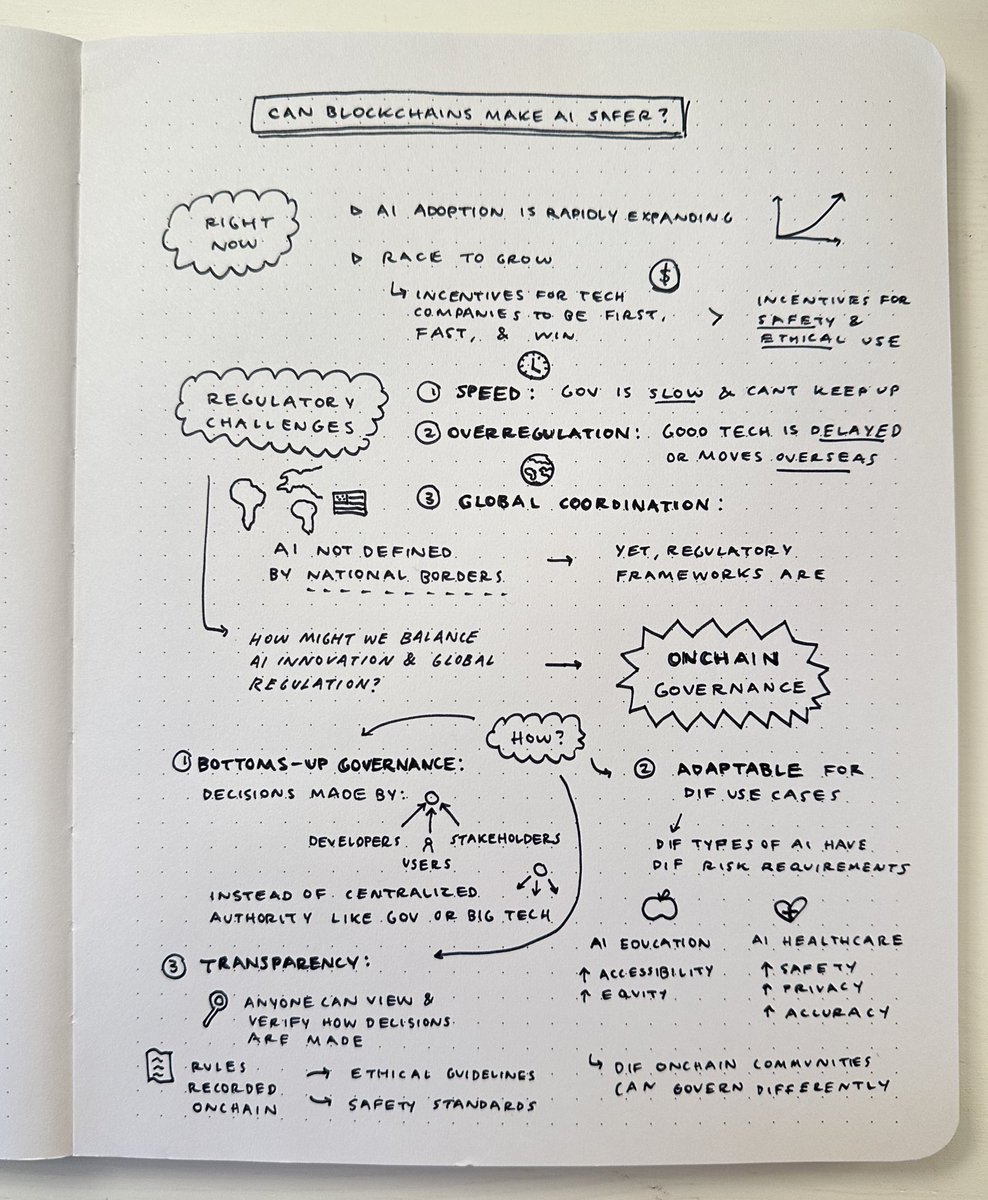 CAN BLOCKCHAINS MAKE AI SAFER?
RIGHT
NOW
▷ AI ADOPTION IS RAPIDLY EXPANDING
▷ RACE TO GROW
$
↳ INCENTIVES FOR TECH
COMPANIES TO BE FIRST,
FAST, & WIN
>
INCENTIVES FOR
SAFETY &
ETHICAL USE
REGULATORY
CHALLENGES
① SPEED: GOV IS SLOW & CANT KEEP UP
② OVERREGULATION: GOOD TECH IS DELAYED
OR MOVES OVERSEAS
③ GLOBAL COORDINATION:
AI NOT DEFINED
BY NATIONAL BORDERS
→
YET, REGULATORY
FRAMEWORKS ARE
HOW MIGHT WE BALANCE
AI INNOVATION & GLOBAL
REGULATION?
→
ONCHAIN
GOVERNANCE
HOW?
① BOTTOMS-UP GOVERNANCE:
DECISIONS MADE BY:
DEVELOPERS STAKEHOLDERS
USERS
INSTEAD OF CENTRALIZED
AUTHORITY LIKE GOV OR BIG TECH
② ADAPTABLE FOR
DIF USE CASES
DIF TYPES OF AI HAVE
DIF RISK REQUIREMENTS
AI EDUCATION
↑ ACCESSIBILITY
↑ EQUITY
AI HEALTHCARE
↑ SAFETY
↑ PRIVACY
↑ ACCURACY
↳ DIF ONCHAIN COMMUNITIES
CAN GOVERN DIFFERENTLY
③ TRANSPARENCY:
ANYONE CAN VIEW &
VERIFY HOW DECISIONS
ARE MADE
RULES
RECORDED
ONCHAIN
→ ETHICAL GUIDELINES
↳ SAFETY STANDARDS